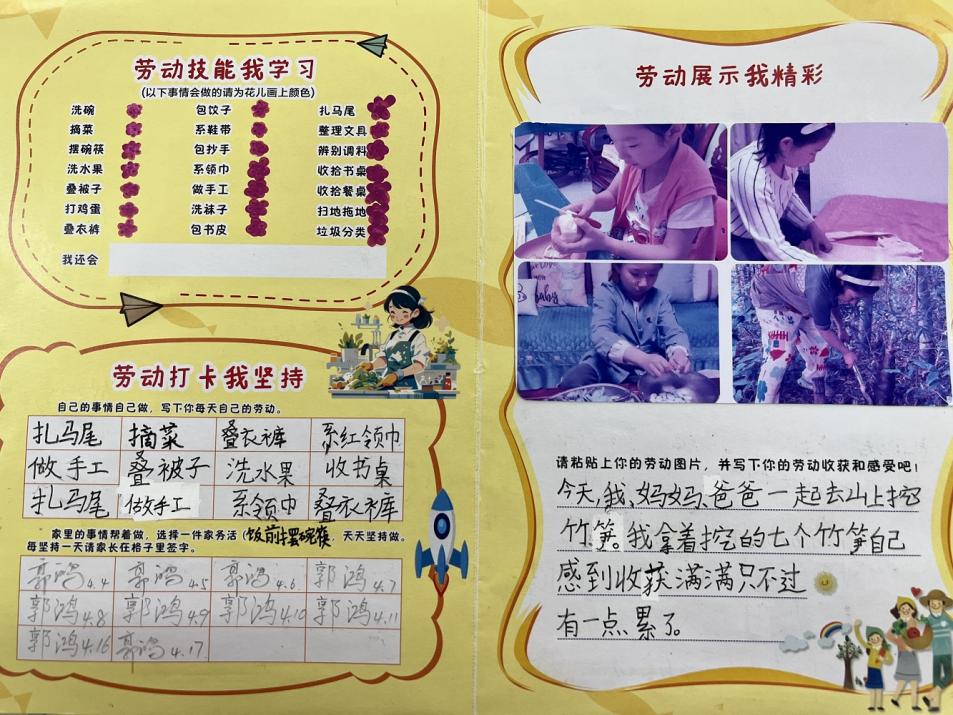 劳动技能我学习
(以下事情会做的请为花儿画上颜色)
洗碗 包饺子 扎马尾
摘菜 系鞋带 整理文具
摆碗筷 包抄手 辨别调料
洗水果 系领巾 收拾书桌
叠被子 做手工 收拾餐桌
打鸡蛋 洗袜子 扫地拖地
叠衣裤 包书皮 垃圾分类
我还会
劳动打卡我坚持
自己的事情自己做,写下你每天自己的劳动。
扎马尾 摘菜 叠衣裤 系红领巾
做手工 叠被子 洗水果 收书桌
扎马尾 做手工 系领巾 叠衣裤
家里的事情帮着做,选择一件家务活(饭前摆碗筷 天天坚持做。
每坚持一天请家长在格子里签字。
郭鸿4.4 郭鸿4.5 郭鸿4.6 郭鸿4.7
郭鸿4.8 郭鸿4.9 郭鸿4.10 郭鸿4.11
郭鸿4.16 郭鸿4.17
劳动展示我精彩
baby
请粘贴上你的劳动图片,并写下你的劳动收获和感受吧!
今天,我、妈妈、爸爸一起去山上挖
竹笋。我拿着挖的七个竹笋自己
感到收获满满只不过
有一点累了。